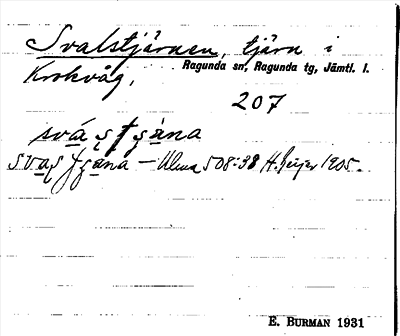 Svalstjärnen, tjärn i
Krokvåg, Ragunda sn, Ragunda tg, Jämtl. l.
207
svá̱ʂ tʂä̀na
sva̱ʂ tʂäna – Ulma 508:38 H. Geijer 1905.
E. BURMAN 1931